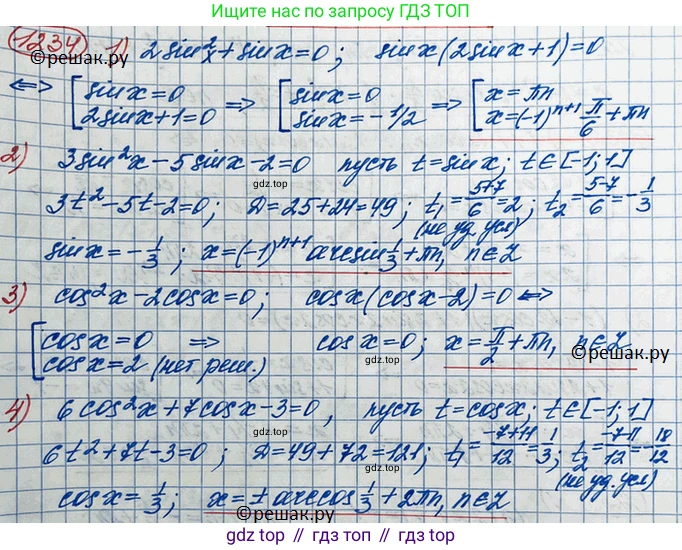 Ищите нас по запросу ГДЗ ТОП
1234 1) 2sin²x + sinx = 0; sinx(2sinx+1)=0
©решак.ру
⟺ [ sinx=0 ⟹ [ sinx=0 ⟹ [ x=πn
2sinx+1=0 sinx=-1/2 x=(-1)ⁿ⁺¹ π/6 + πn
2) 3sin²x - 5sinx - 2 = 0 пусть t=sinx; t∈[-1;1]
gdz.top
3t²-5t-2=0; D=25+24=49; t₁=5+7/6=2; t₂=5-7/6=-1/3
(не уд. усл)
sinx=-1/3; x=(-1)ⁿ⁺¹ arcsin 1/3 + πn, n∈Z
gdz.top
3) cos²x-2cosx=0; cosx(cosx-2)=0 ⟺
[ cosx=0 ⟹ cosx=0; x=π/2+πn, n∈Z
cosx=2 (нет реш.)
gdz.top
©решак.ру
4) 6cos²x+7cosx-3=0, пусть t=cosx; t∈[-1;1]
6t²+7t-3=0; D=49+72=121; t₁=-7+11/12=1/3; t₂=-7-11/12=-18/12
gdz.top
(не уд. усл)
cosx=1/3; x=±arccos 1/3+2πn, n∈Z
©решак.ру
gdz.top // gdz.top // gdz.top